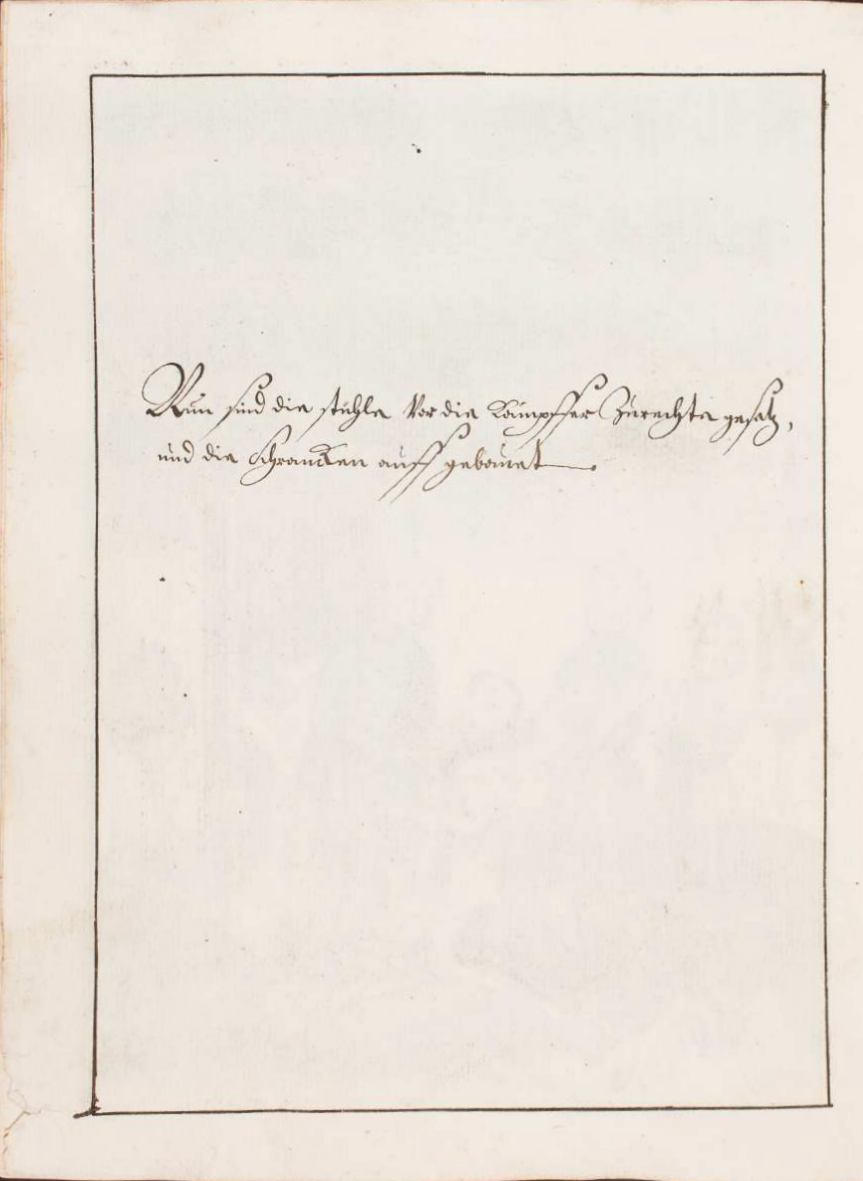 Nun sind die stühle Vor die Kämpffer Zurechte gesatz,
und die Schrancken auff gebauet.